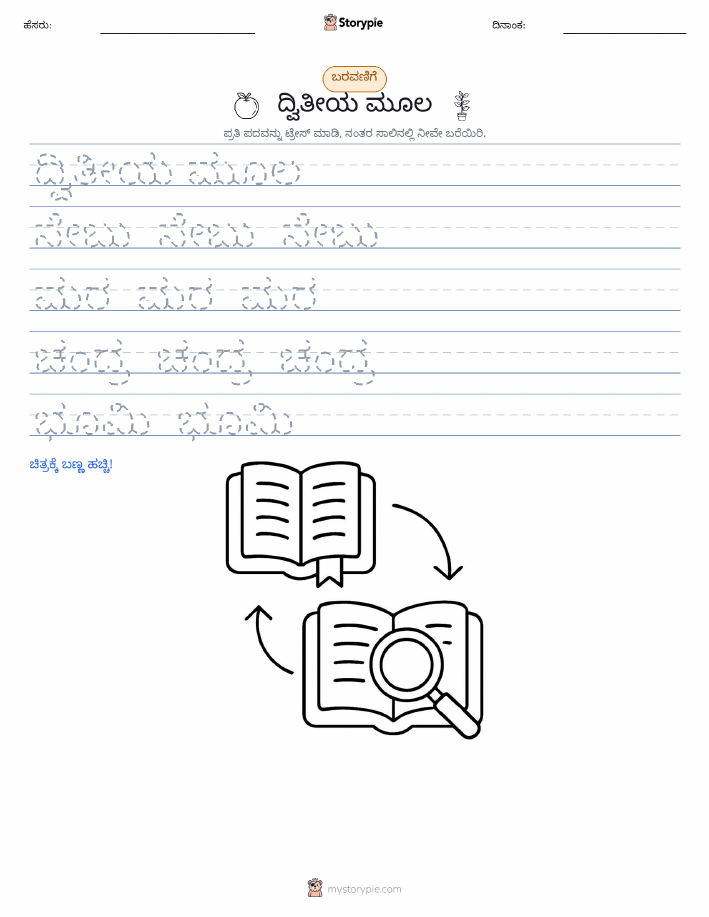 ಹೆಸರು:
Storypie
ದಿನಾಂಕ:
ಬರವಣಿಗೆ
ದ್ವಿತೀಯ ಮೂಲ
ಪ್ರತಿ ಪದವನ್ನು ಟ್ರೇಸ್ ಮಾಡಿ, ನಂತರ ಸಾಲಿನಲ್ಲಿ ನೀವೇ ಬರೆಯಿರಿ.
ದ್ವಿತೀಯ ಮೂಲ
ಸೇಬು ಸೇಬು ಸೇಬು
ಮರ ಮರ ಮರ
ಚಂದ್ರ ಚಂದ್ರ ಚಂದ್ರ
ಭೂಮಿ ಭೂಮಿ
ಚಿತ್ರಕ್ಕೆ ಬಣ್ಣ ಹಚ್ಚಿ!
mystorypie.com